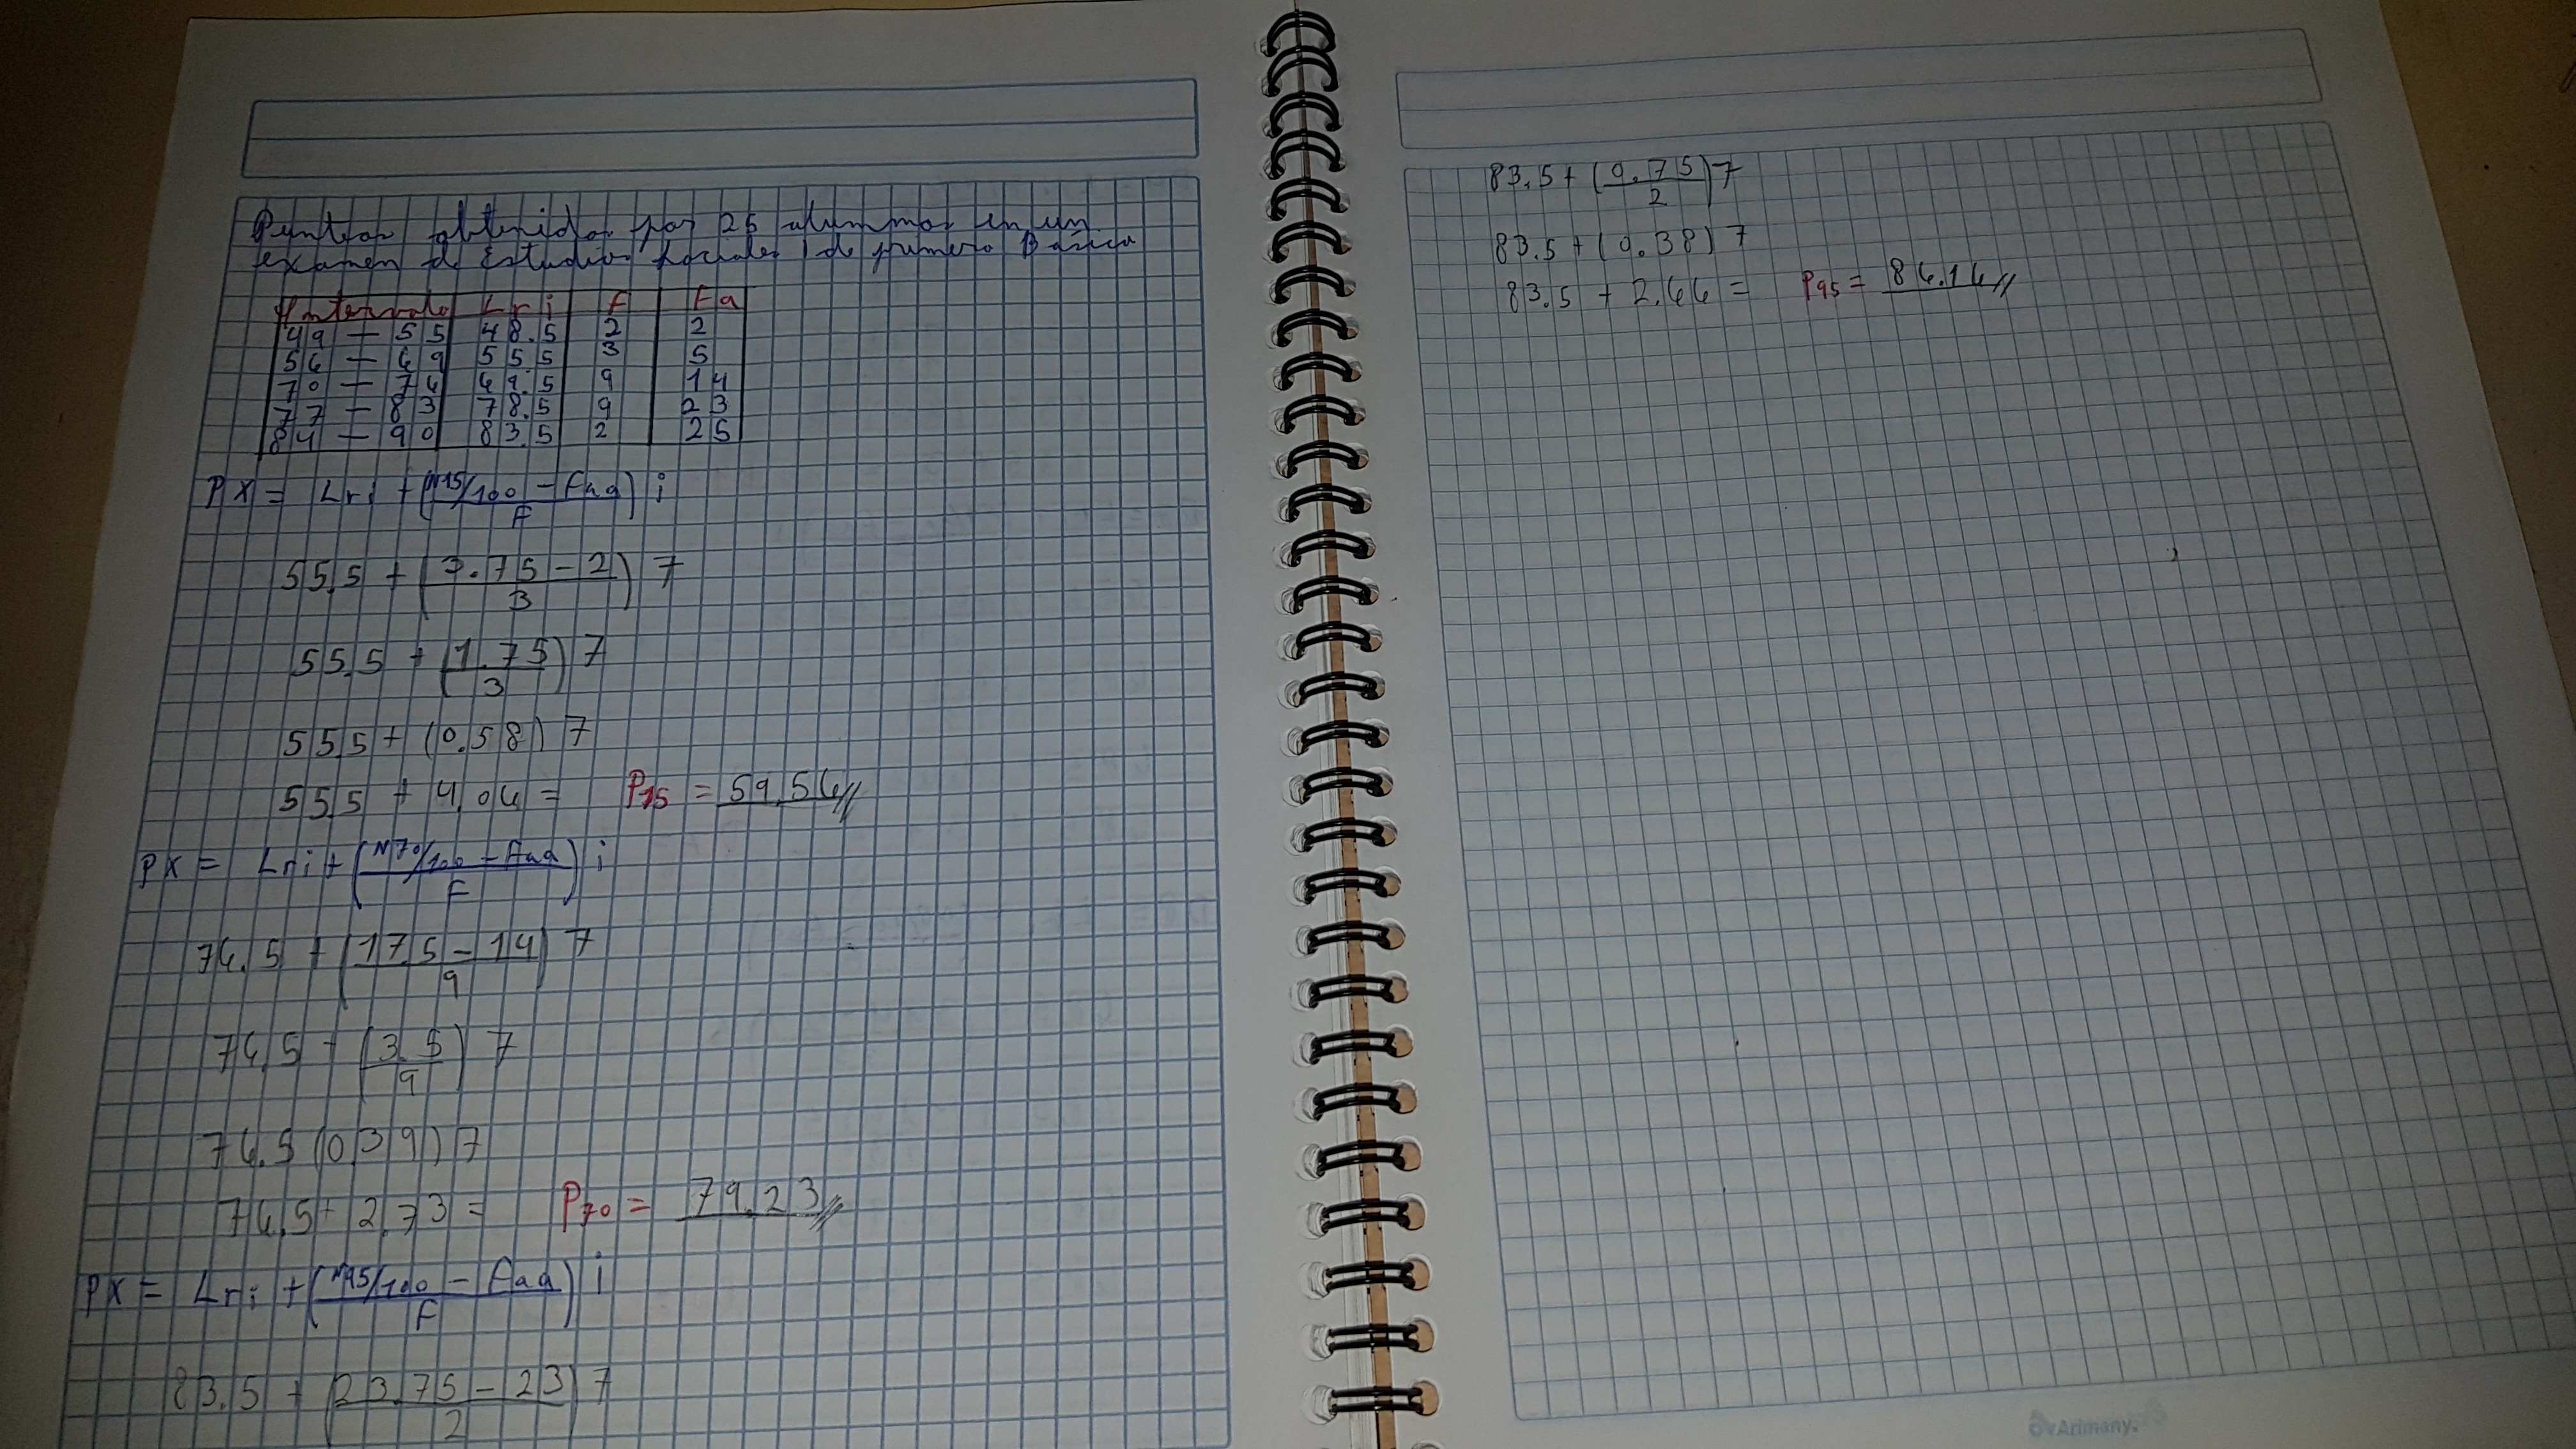 Punteos obtenidos por 25 alumnos en un
examen de Estudios Sociales de primero Básico
Intervalo Lri F Fa
49 - 55 48.5 2 2
56 - 69 55.5 3 5
70 - 76 69.5 9 14
77 - 83 78.5 9 23
84 - 90 83.5 2 25
PX = Lri + (N15/100 - Faa) i
F
55.5 + (3.75 - 2) 7
3
55.5 + (1.75) 7
3
55.5 + (0.58) 7
55.5 + 4.06 = P15 = 59.56//
PX = Lri + (N70/100 - Faa) i
F
76.5 + (17.5 - 14) 7
9
76.5 + (3.5) 7
9
76.5 (0.39) 7
76.5 + 2.73 = P70 = 79.23//
PX = Lri + (N95/100 - Faa) i
F
83.5 + (23.75 - 23) 7
2
83.5 + (0.75) 7
2
83.5 + (0.38) 7
83.5 + 2.66 = P95 = 86.16//
Arimany.